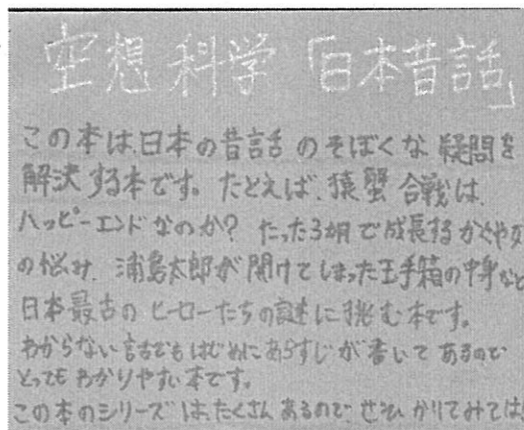 空想科学「日本昔話」
この本は、日本の昔話のそぼくな疑問を
解決する本です。たとえば、猿蟹合戦は、
ハッピーエンドなのか? たった3ヶ月で成長するかぐや
の悩み、浦島太郎が開けてしまった玉手箱の中身など
日本最古のヒーローたちの謎に挑む本です。
わからない話でもはじめにあらすじが書いてあるので
とってもわかりやすい本です。
この本のシリーズは、たくさんあるので、ぜひかりてみては